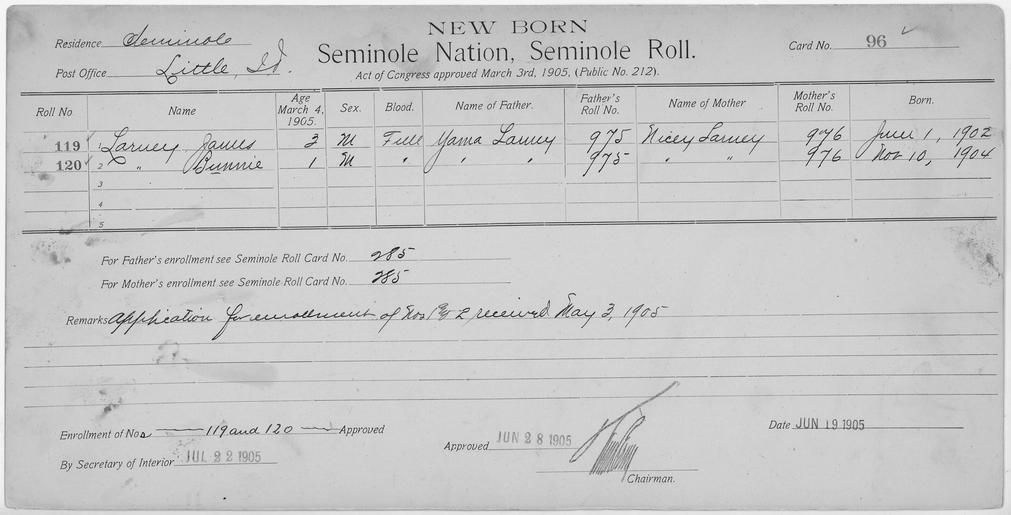 NEW BORN
Seminole Nation, Seminole Roll.
Act of Congress approved March 3rd, 1905, (Public No. 212).
Residence Seminole
Post Office Little, I.T.
Card No. 96
Roll No Name Age March 4, 1905. Sex. Blood. Name of Father. Father's Roll No. Name of Mother Mother's Roll No. Born.
119 Larney James 3 M Full Yama Larney 975 Nicey Larney 976 June 1, 1902
120 2 " Bunnie 1 M " " " 975 " " 976 Nov 10, 1904
3
4
5
For Father's enrollment see Seminole Roll Card No. 285
For Mother's enrollment see Seminole Roll Card No. 285
Remarks Application for enrollment of Nos 1 & 2 received May 3, 1905
Enrollment of Nos 119 and 120 Approved
By Secretary of Interior JUL 22 1905
Approved JUN 28 1905
Chairman.
Date JUN 19 1905